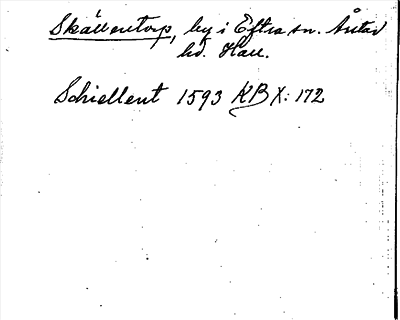 Skällentorp, by i Eftra sn. Årstad
hd. Hall.
Schiellent 1593 KB X: 172